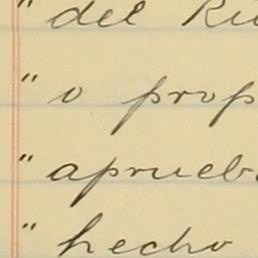 " del Ru
" o prop
" aprueb
" hecho